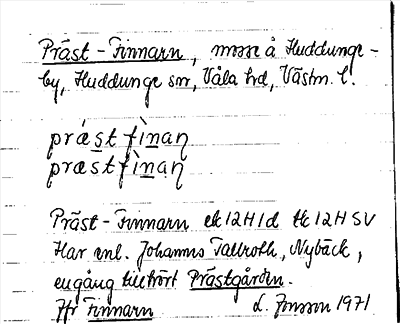 Präst-Finnarn, mosse å Huddunge-
by, Huddunge sn, Våla hd, Västm. l.
prästfìnaṇ
præstfìnaṇ
Präst-Finnarn ek 12H1d tk 12H SV
Har enl. Johannes Tallroth, Nybäck,
en gång tillhört Prästgården.
Jfr Finnarn L. Jonsson 1971